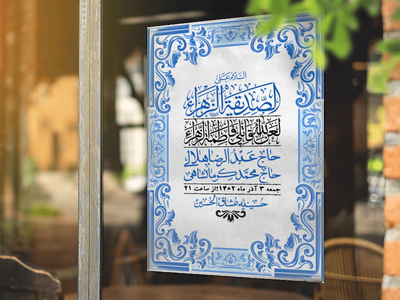 السلام علیک
الصدیقة الزهراء
لعن الله قاتلی فاطمة الزهراء
حاج عبدالرضا هلالی
حاج محمد کرمانشاهی
جمعه ۳ آذر ماه ۱۴۰۲ | از ساعت ۲۱
حسینیه عشاق الحسین